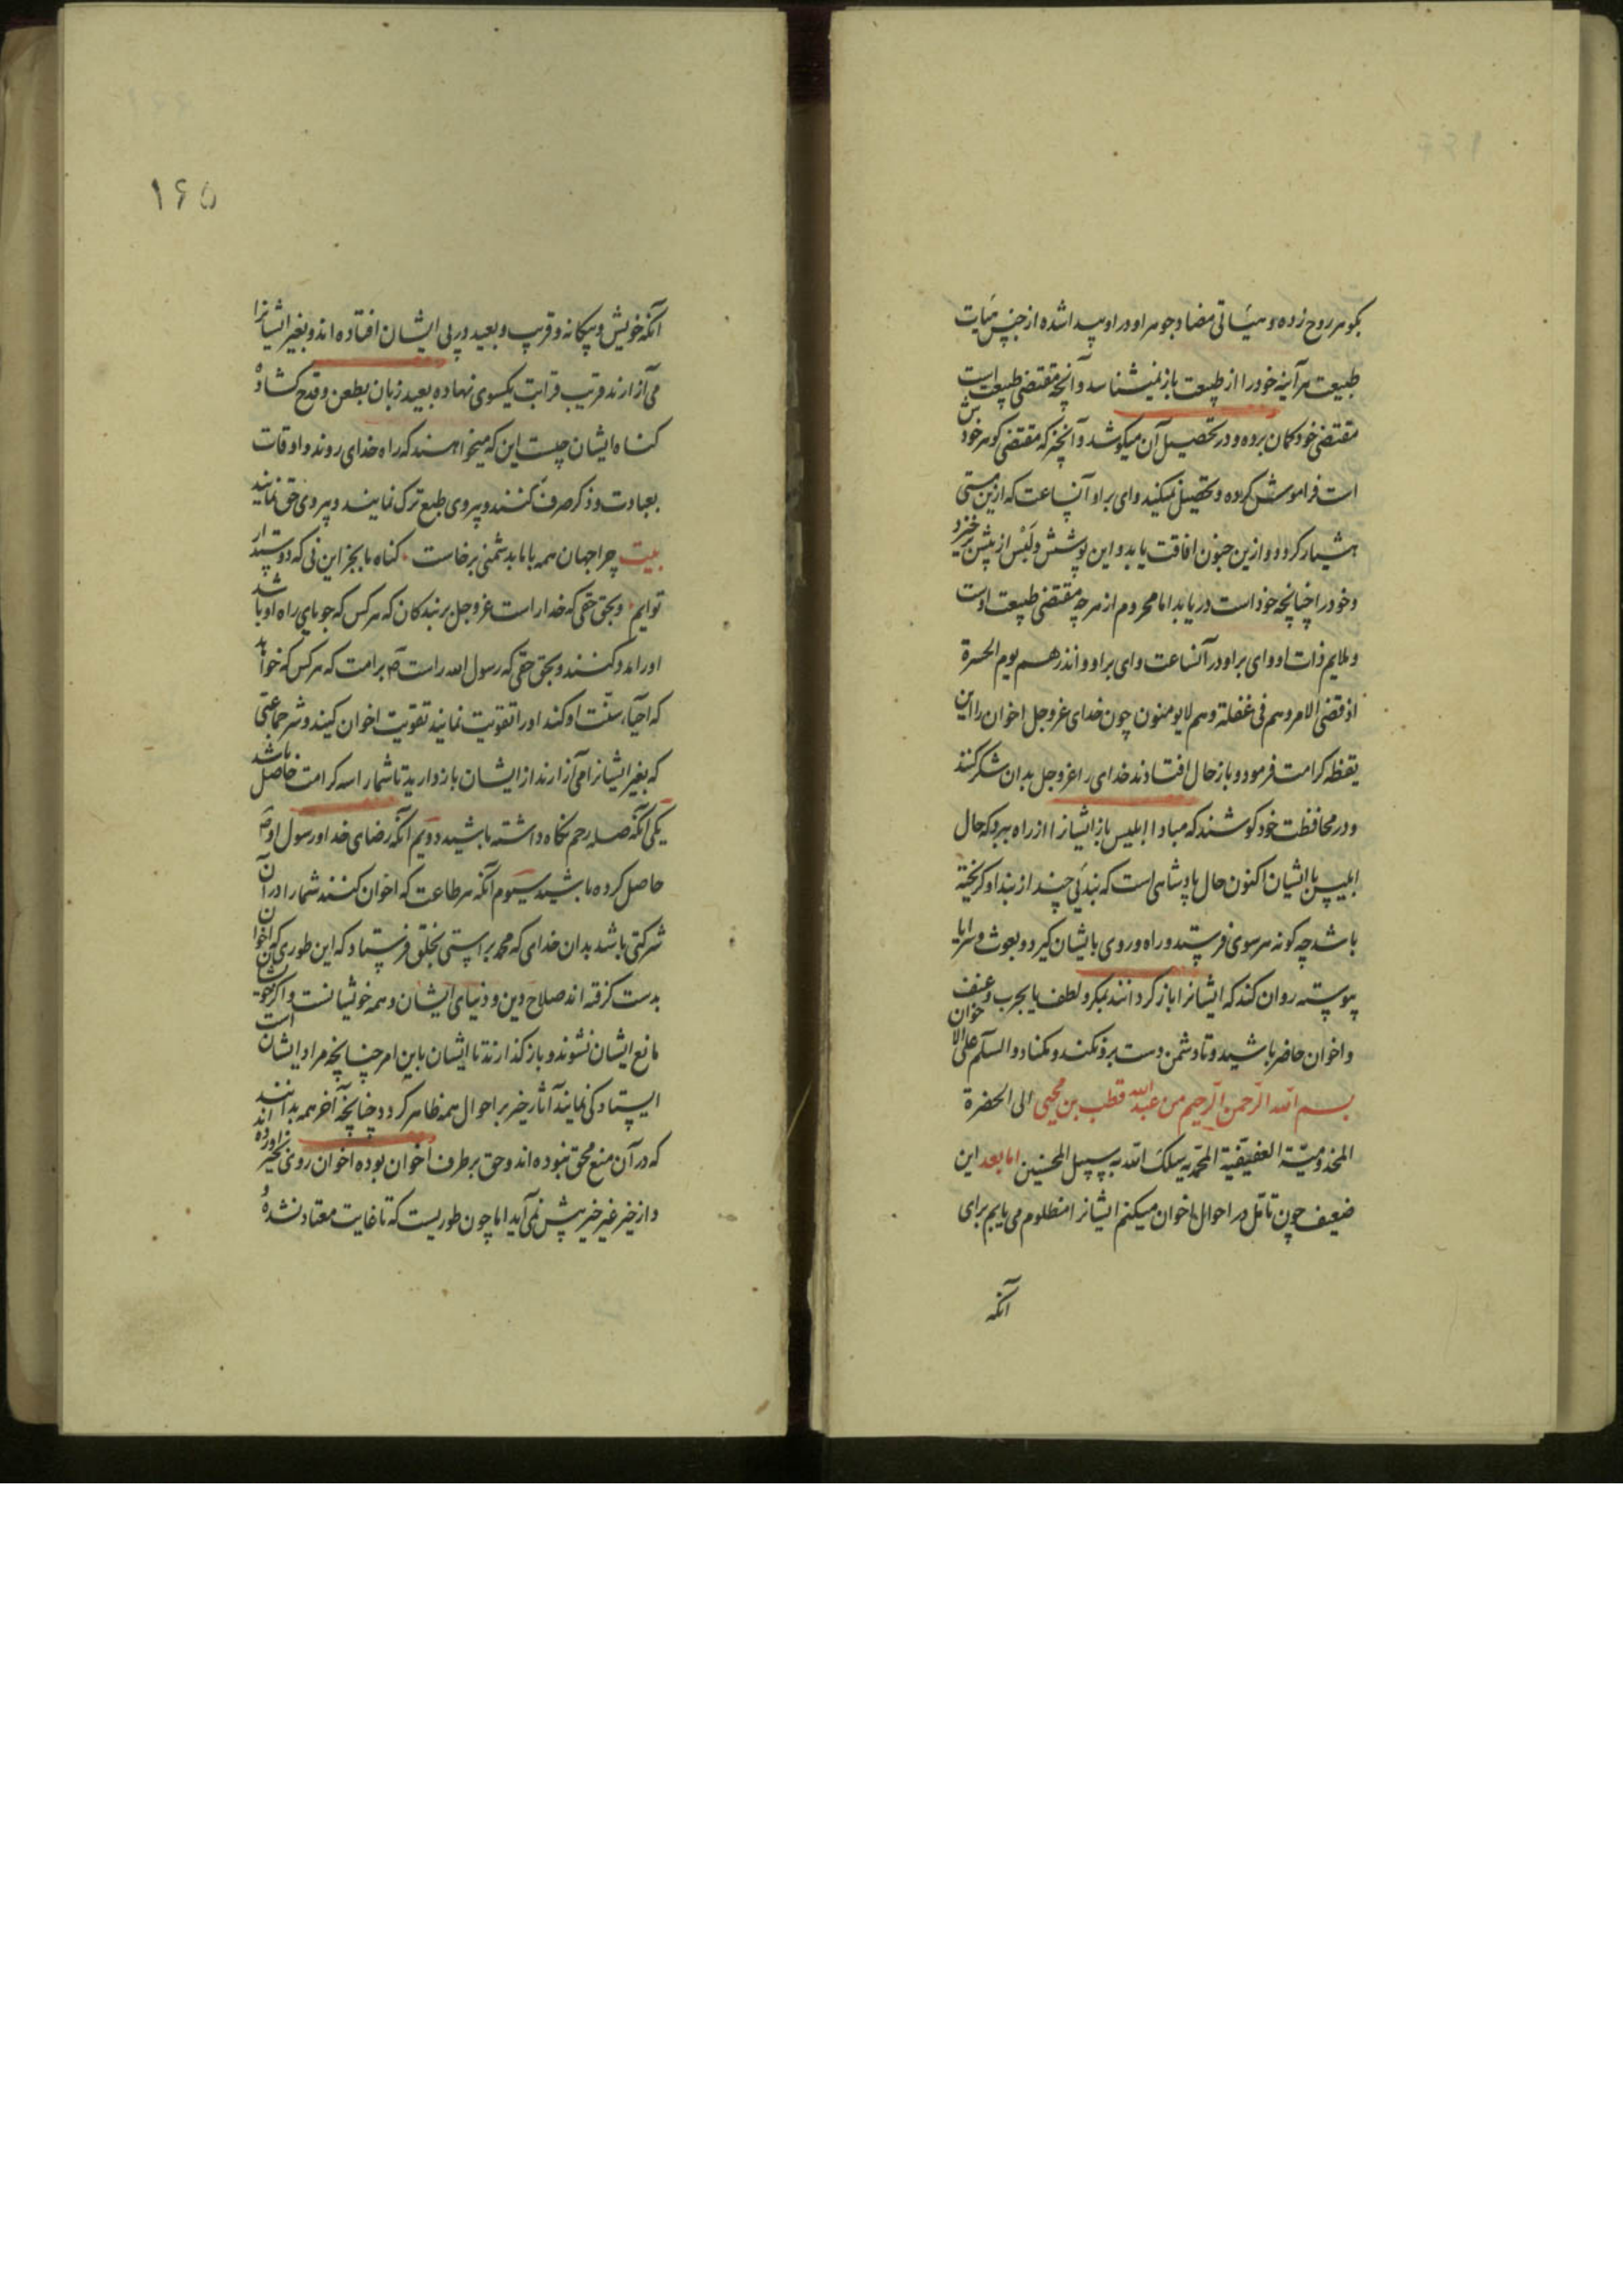 بکوهر روح زده و هیئاتی مضاد جوهر او در او پیدا شده از جنس هیآت
طبیعت هر آینه خود را از طبیعت باز نمیشناسد و آنچه مقتضی طبیعت است
مقتضی خود کمان برده و در تحصیل آن میکوشد و آنچه که مقتضی کوهر خودش
است فراموش کرده و تحصیل نمیکند وای بر او آنساعت که ازین مستی
هشیار کردد و ازین جنون افاقت یابد و این پوشش و لبس از پیش برخیزد
و خود را چنانچه خود است دریابد اما محروم از هر چه مقتضی طبیعت اوست
و ملایم ذات او وای بر او در آنساعت وای بر او و انذرهم یوم الحسرة
اذ قضی الامر وهم فی غفلة وهم لایومنون چون خدای عزوجل اخوان را این
یقظه کرامت فرمود و باز حال افتادند خدای را عزوجل بدان شکر کنند
و در محافظت خود کوشند که مبادا ابلیس باز ایشانرا از راه ببرد که حال
ابلیس با ایشان اکنون حال پادشاهی است که بندئی چند از بند او کریخته
باشد چه کونه هر سوی فرستد و راه و روی بایشان کیرد و بعوث و سرایا
پیوسته روان کند که ایشانرا باز کردانند بمکر و لطف یا بحرب و عنف
و اخوان حاضر باشید و تا دشمن دست برد نکند و نکناد والسلام علی الاخوان
بسم الله الرحمن الرحیم من عبدالله قطب بن محیی الی الحضرة
المخدومیة العفیفیة المحمدیه سلک الله به سبیل المحسنین اما بعد این
ضعیف چون تامل در احوال اخوان میکنم ایشانرا مظلوم می یابم برای
آنکه
۱۶۵
آنکه خویش و بیکانه و قریب و بعید در پی ایشان افتاده اند و بغیر ایشانرا
می آزارند قریب قرابت یکسوی نهاده بعید زبان بطعن و قدح کشاده
کناه ایشان چیست این که میخواهند که راه خدای روند و اوقات
بعبادت و ذکر صرف کنند و پیروی طبع ترک نمایند و پیروی حق نمایند
بیت چرا جهان همه با ما بدشمنی برخاست کناه ما بجز این نی که دوستدار
توایم و بحق حقی که خدا راست عزوجل بر بندکان که هر کس که جویای راه او باشد
او را مدد کنند و بحق حقی که رسول الله راست ص بر امت که هر کس که خواهد
که احیاء سنت او کند او را تقویت نمایند تقویت اخوان کنید و شر جماعتی
که بغیر ایشانرا می آزارند از ایشان باز دارید تا شما را سه کرامت حاصل باشد
یکی آنکه صله رحم نکاه داشته باشید دویم آنکه رضای خدا و رسول او ص
حاصل کرده باشید سیوم آنکه هر طاعت که اخوان کنند شما را در آن
شرکتی باشد بدان خدای که محمد براستی بخلق فرستاد که این طوری که اخوان
بدست کرفته اند صلاح دین و دنیای ایشان و همه خویشانست و اکر خویشان
مانع ایشان نشوند و باز کذارند تا ایشان باین امر چنانچه مراد ایشان است
ایستادکی نمایند آثار خیر بر احوال همه ظاهر کردد چنانچه آخر همه بدانند
که در آن منع محق نبوده اند و حق بر طرف اخوان بوده اخوان روی بخیر آورده اند
و از خیر غیر خیر پیش نمی آید اما چون طوریست که تا غایت معتاد نشده